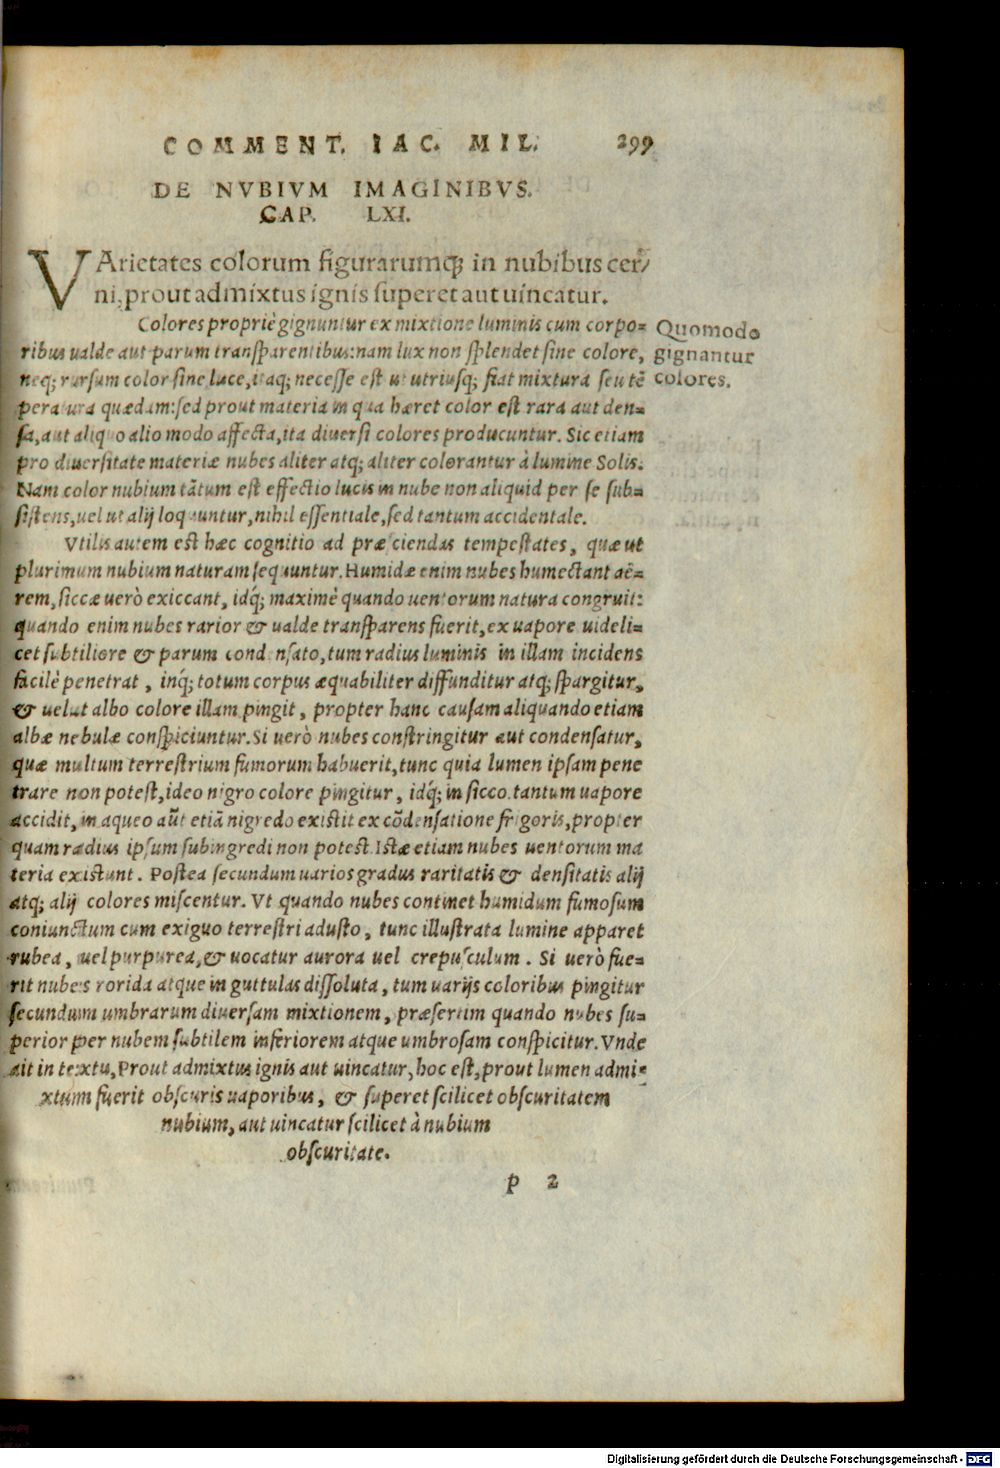 COMMENT. IAC. MIL. 299
DE NVBIVM IMAGINIBVS.
CAP. LXI.
VArietates colorum figurarumq; in nubibus cer/
ni, prout admixtus ignis superet aut uincatur.
Colores propriè gignuntur ex mixtione luminis cum corpo=
ribus ualde aut parum transparentibus: nam lux non splendet sine colore,
neq; rursum color sine luce, itaq; necesse est ut utriusq; fiat mixtura seu tē
peratura quædam: sed prout materia in qua hæret color est rara aut den=
sa, aut aliquo alio modo affecta, ita diuersi colores producuntur. Sic etiam
pro diuersitate materiæ nubes aliter atq; aliter colorantur à lumine Solis.
Nam color nubium tātum est effectio lucis in nube non aliquid per se sub=
sistens, uel ut alij loquuntur, nihil essentiale, sed tantum accidentale.
Quomodo
gignantur
colores.
Vtilis autem est hæc cognitio ad præsciendas tempestates, quæ ut
plurimum nubium naturam sequuntur. Humidæ enim nubes humectant aē=
rem, siccæ uerò exiccant, idq́; maximè quando uentorum natura congruit:
quando enim nubes rarior & ualde transparens fuerit, ex uapore uideli=
cet subtiliore & parum condensato, tum radius luminis in illam incidens
facilè penetrat, inq́; totum corpus æquabiliter diffunditur atq; spargitur,
& uelut albo colore illam pingit, propter hanc causam aliquando etiam
albæ nebulæ conspiciuntur. Si uerò nubes constringitur aut condensatur,
quæ multum terrestrium fumorum habuerit, tunc quia lumen ipsam pene
trare non potest, ideo nigro colore pingitur, idq́; in sicco tantum uapore
accidit, in aqueo aūt etiā nigredo existit ex cōdensatione frigoris, propter
quam radius ipsum subingredi non potest. Istæ etiam nubes uentorum ma
teria existunt. Postea secundum uarios gradus raritatis & densitatis alij
atq; alij colores miscentur. Vt quando nubes continet humidum fumosum
coniunctum cum exiguo terrestri adusto, tunc illustrata lumine apparet
rubea, uel purpurea, & uocatur aurora uel crepusculum. Si uerò fue=
rit nubes rorida atque in guttulas dissoluta, tum uarijs coloribus pingitur
secundum umbrarum diuersam mixtionem, præsertim quando nubes su=
perior per nubem subtilem inferiorem atque umbrosam conspicitur. Vnde
ait in textu, Prout admixtus ignis aut uincatur, hoc est, prout lumen admi=
xtum fuerit obscuris uaporibus, & superet scilicet obscuritatem
nubium, aut uincatur scilicet à nubium
obscuritate.
p 2
Digitalisierung gefördert durch die Deutsche Forschungsgemeinschaft - DFG